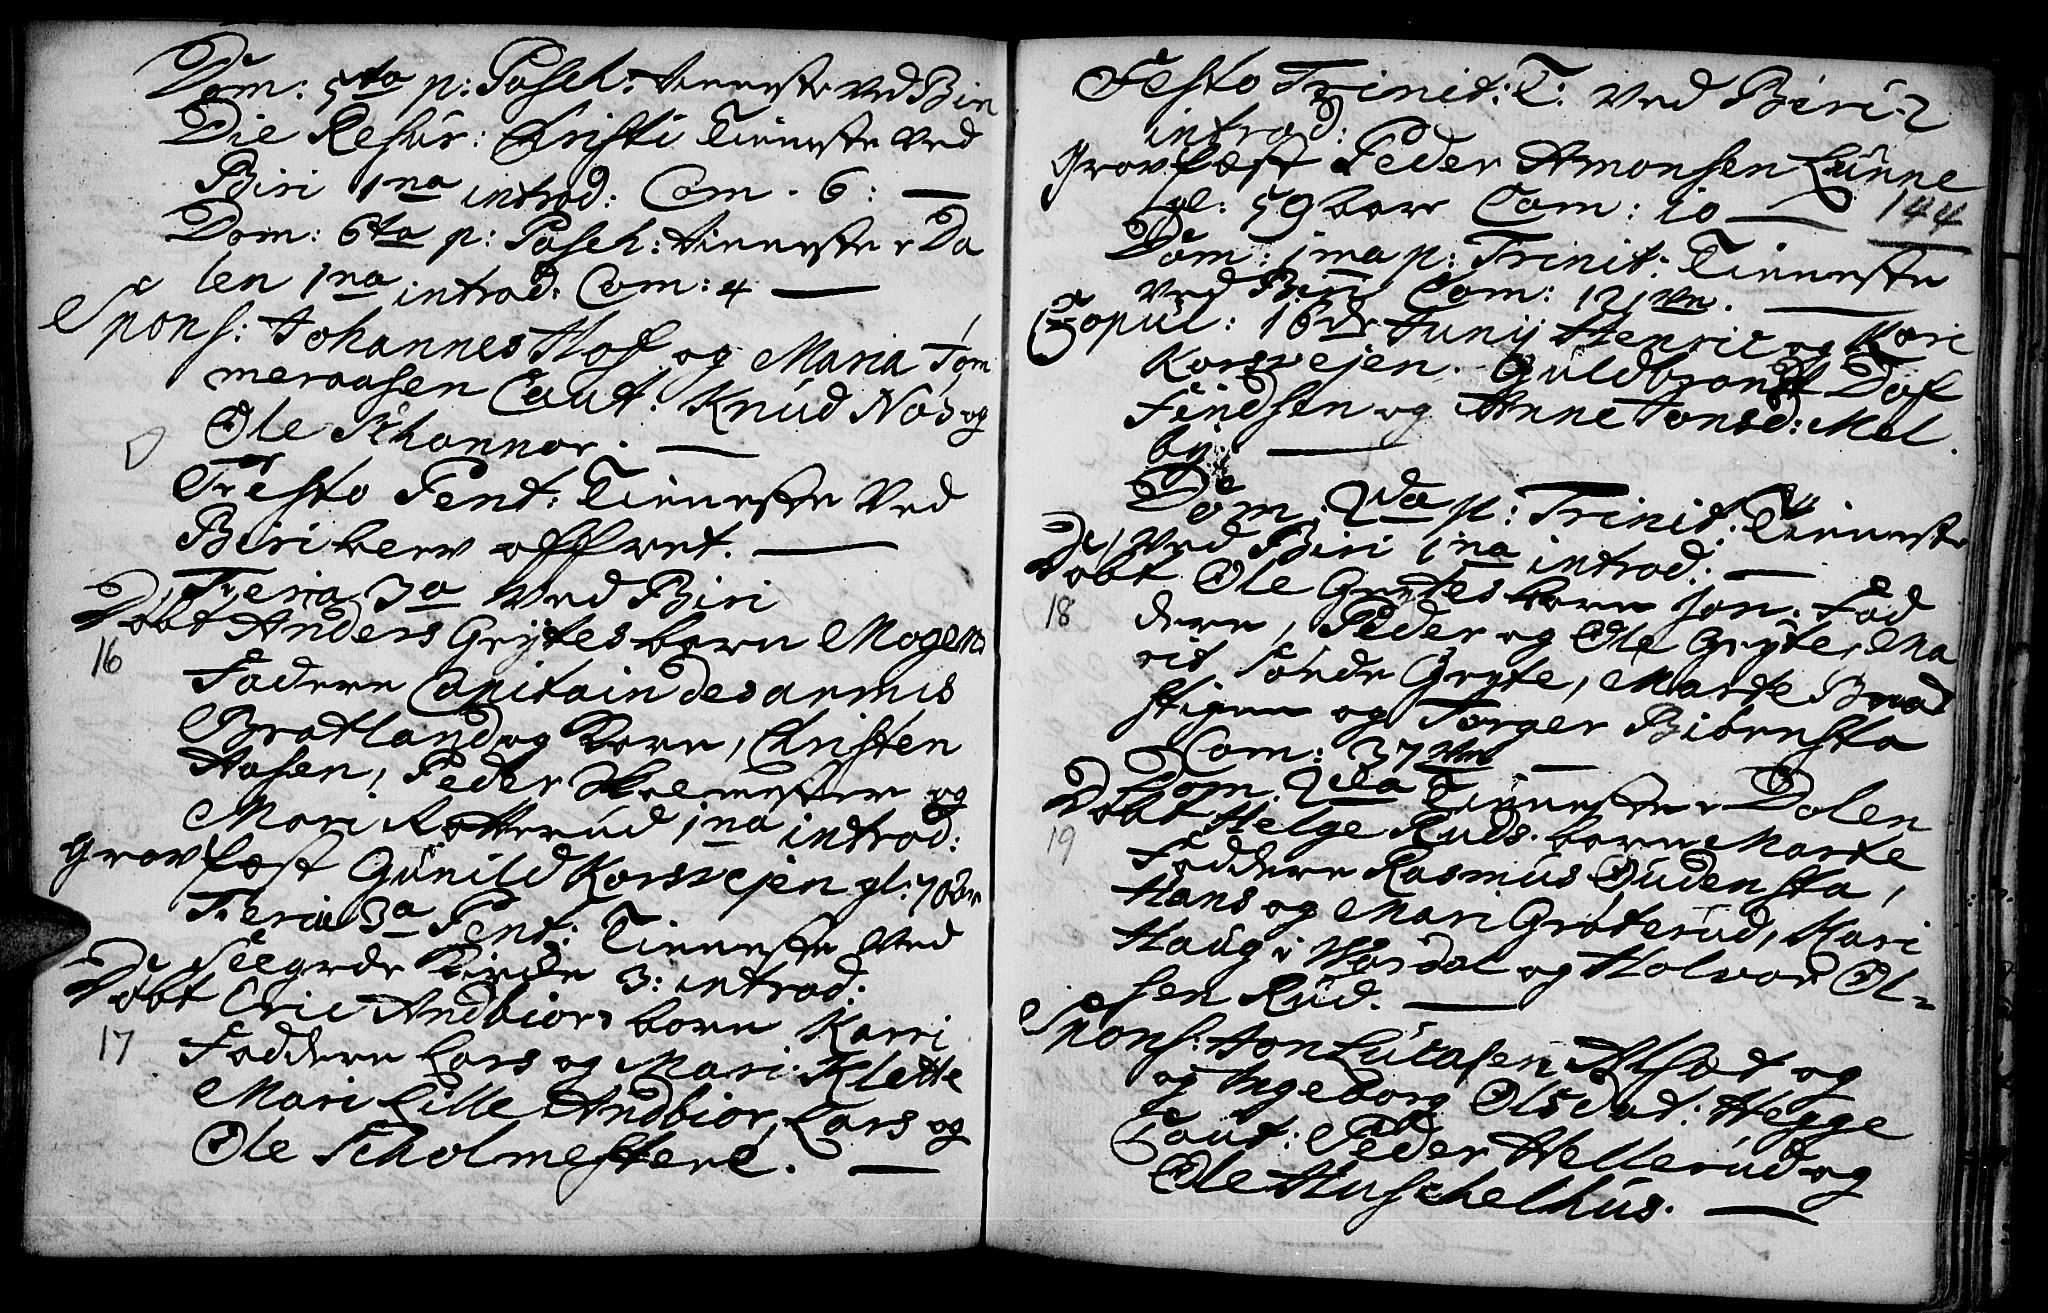 Dom: 5ta p: Pasch: tienneste ved Biri
Die Resur: Christi Tienneste ved
Biri 1na introd: Com. 6:
Dom: 6ta p: Pasch: tienneste i Da
len 1na introd: Com: 4
Spons: Johannes Hof og Maria Tom
meraasen Caut: Knud Nos og
Ole
Festo Pent: Tienneste ved
Biri blev offret.
Feria 3a ved Biri
Døbt Anders Grÿtes barn Mogens
16
Faderne Capitain desarmis
Bratland og Kone, Christen
Aasen, Peder Skolemester og
Mari Rotterud 1na introd:
Grav fæst Gunild Korsvejen gl: 70 Aar
Feria 3a Pent: Tienneste ved
Seegrde Kirche 3: introd:
Døbt Eric Andbiørs barn Karri
17
Faddere Lars og Mari Klette
Mari Lille Andbiør, Lars og
Ole Scholmestere.
Festo Trinit: T: ved Biri 2
introd:
Grav fæst Peder Amonsen Lunne
gl: 59 Aar Com: 10
144
Dom: 1ma p: Trinit: Tienneste
ved Biri Com: 121
Copul: 16de Junij Henric og Kari
Korsvejen. Guldbrandt Daf
Findsen og Anne Jonsd: Mel
by.
Dom. 2da p: Trinit: Tienneste
ved Biri 1na introd:
Døbt Ole Grytes barn Jon. Fad
18
derne, Peder og Ole Gryte, Ma
rit Søndr Gryte, Marte Braa
stigen og Torger Biørnsta
Com: 37
Dom. 2da Tienneste i Dalen
Døbt Helge Ruds barn Marte
19
Faddere Rasmus Oudensta,
Hans og Mari Grøterud, Kari
Haug i Wardal og Halvor Ol-
sen Rud.
Spons: Jon Lucasen Alfæt og
og Ingeborg Olsdat: Hegge
Caut: Peder Hellerud og
Ole Huschelhus.